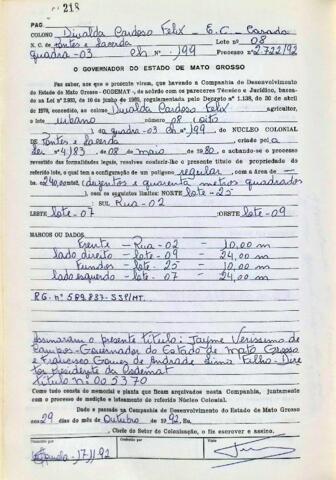 218
PAG.
COLONO Divalda Cardoso Felix - E.C. Casado
N. C. de Pontes e Lacerda Lote nº 08
quadra-03 ch nº 199 Processo nº 2.722/92
O GOVERNADOR DO ESTADO DE MATO GROSSO
Faz saber, aos que o presente virem, que havendo a Companhia de Desenvolvimento
do Estado de Mato Grosso - CODEMAT -, de acordo com os pareceres Técnico e Jurídico, baseada
na Lei nº 2.903, de 10 de junho de 1969, regulamentada pelo Decreto nº 1.138, de 30 de abril
de 1970, concedido ao colono Divalda Cardoso Felix agricultor,
o lote urbano número 08 (oito
) da quadra-03 ch nº 199 do NÚCLEO COLONIAL
de Pontes e Lacerda criado pela
Lei nº 4.183, de 08, de maio de 1980, e achando-se o processo
revestido das formalidades legais, resolveu conferir-lhe o presente título de propriedade do
referido lote, o qual tem a configuração de um polígono regular, com a área de
ha. 240,00m² (duzentos e quarenta metros quadrados
), com os seguintes limites: NORTE lote-25
SUL Rua-02
LESTE lote-07 OESTE lote-09
MARCOS OU DADOS.
Frente - Rua-02 - 10,00 m
lado direito - lote-09 - 24,00 m
Fundos - lote-25 - 10,00 m
lado esquerdo - lote-07 - 24,00 m
RG. nº 589.837-SSP/MT.
Assinaram o presente título: Jayme Verissimo de
Campos - Governador do Estado de Mato Grosso
e Francisco Gomes de Andrade Lima Filho - Dire
tor Presidente da Codemat
Título nº 005370
Como tudo consta do memorial e planta que ficam arquivados nesta Companhia, juntamente
com o processo de medição e loteamento do referido Núcleo Colonial.
Dado e passado na Companhia de Desenvolvimento do Estado de Mato Grosso
aos 29 dias do mês de Outubro de 1992, Eu,
, Chefe do Setor de Colonização, o fiz escrever e assino.
17/11/92
Visto